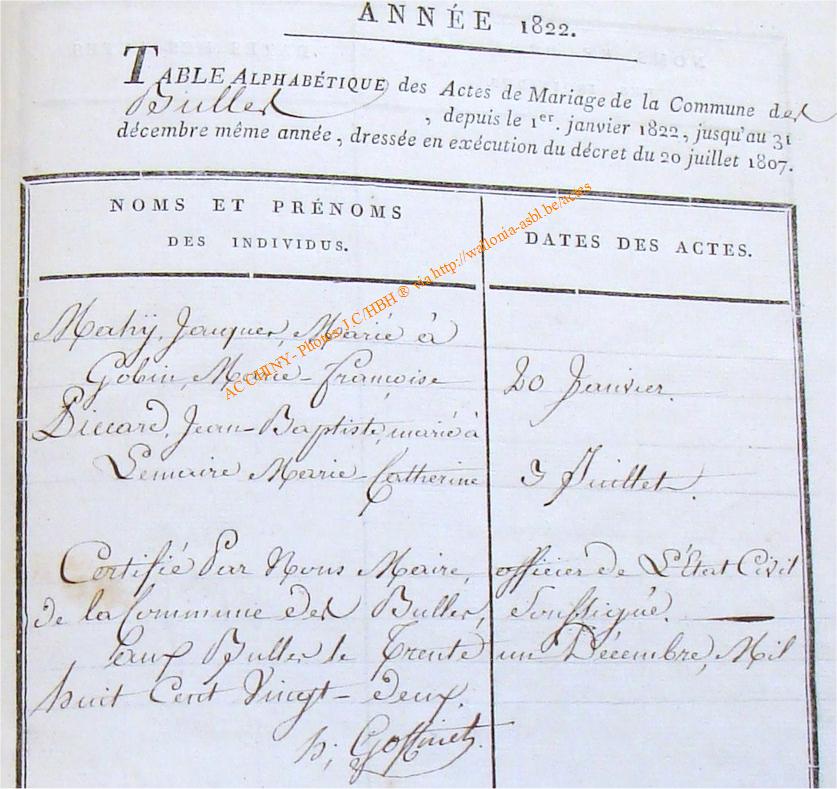 ANNÉE 1822.
TABLE ALPHABÉTIQUE des Actes de Mariage de la Commune des
Bulles, depuis le 1er. janvier 1822, jusqu'au 31
décembre même année, dressée en exécution du décret du 20 juillet 1807.
NOMS ET PRÉNOMS
DES INDIVIDUS.
DATES DES ACTES.
Mahy, Jacques, Marié à
Gobin, Marie-françoise 20 Janvier.
Piccard, Jean-Baptiste, marié à
Lemaire Marie-Catherine 3 Juillet.
Certifié Par Nous Maire, officier de L'État Civil
de la Commune des Bulles, Soussigné.
aux Bulles le Trente un Décembre, Mil
huit Cent Vingt-deux.
h; Goffinet.
AC CHINY - Photos J.C/HBH ® via http://wallonia-asbl.be/actes